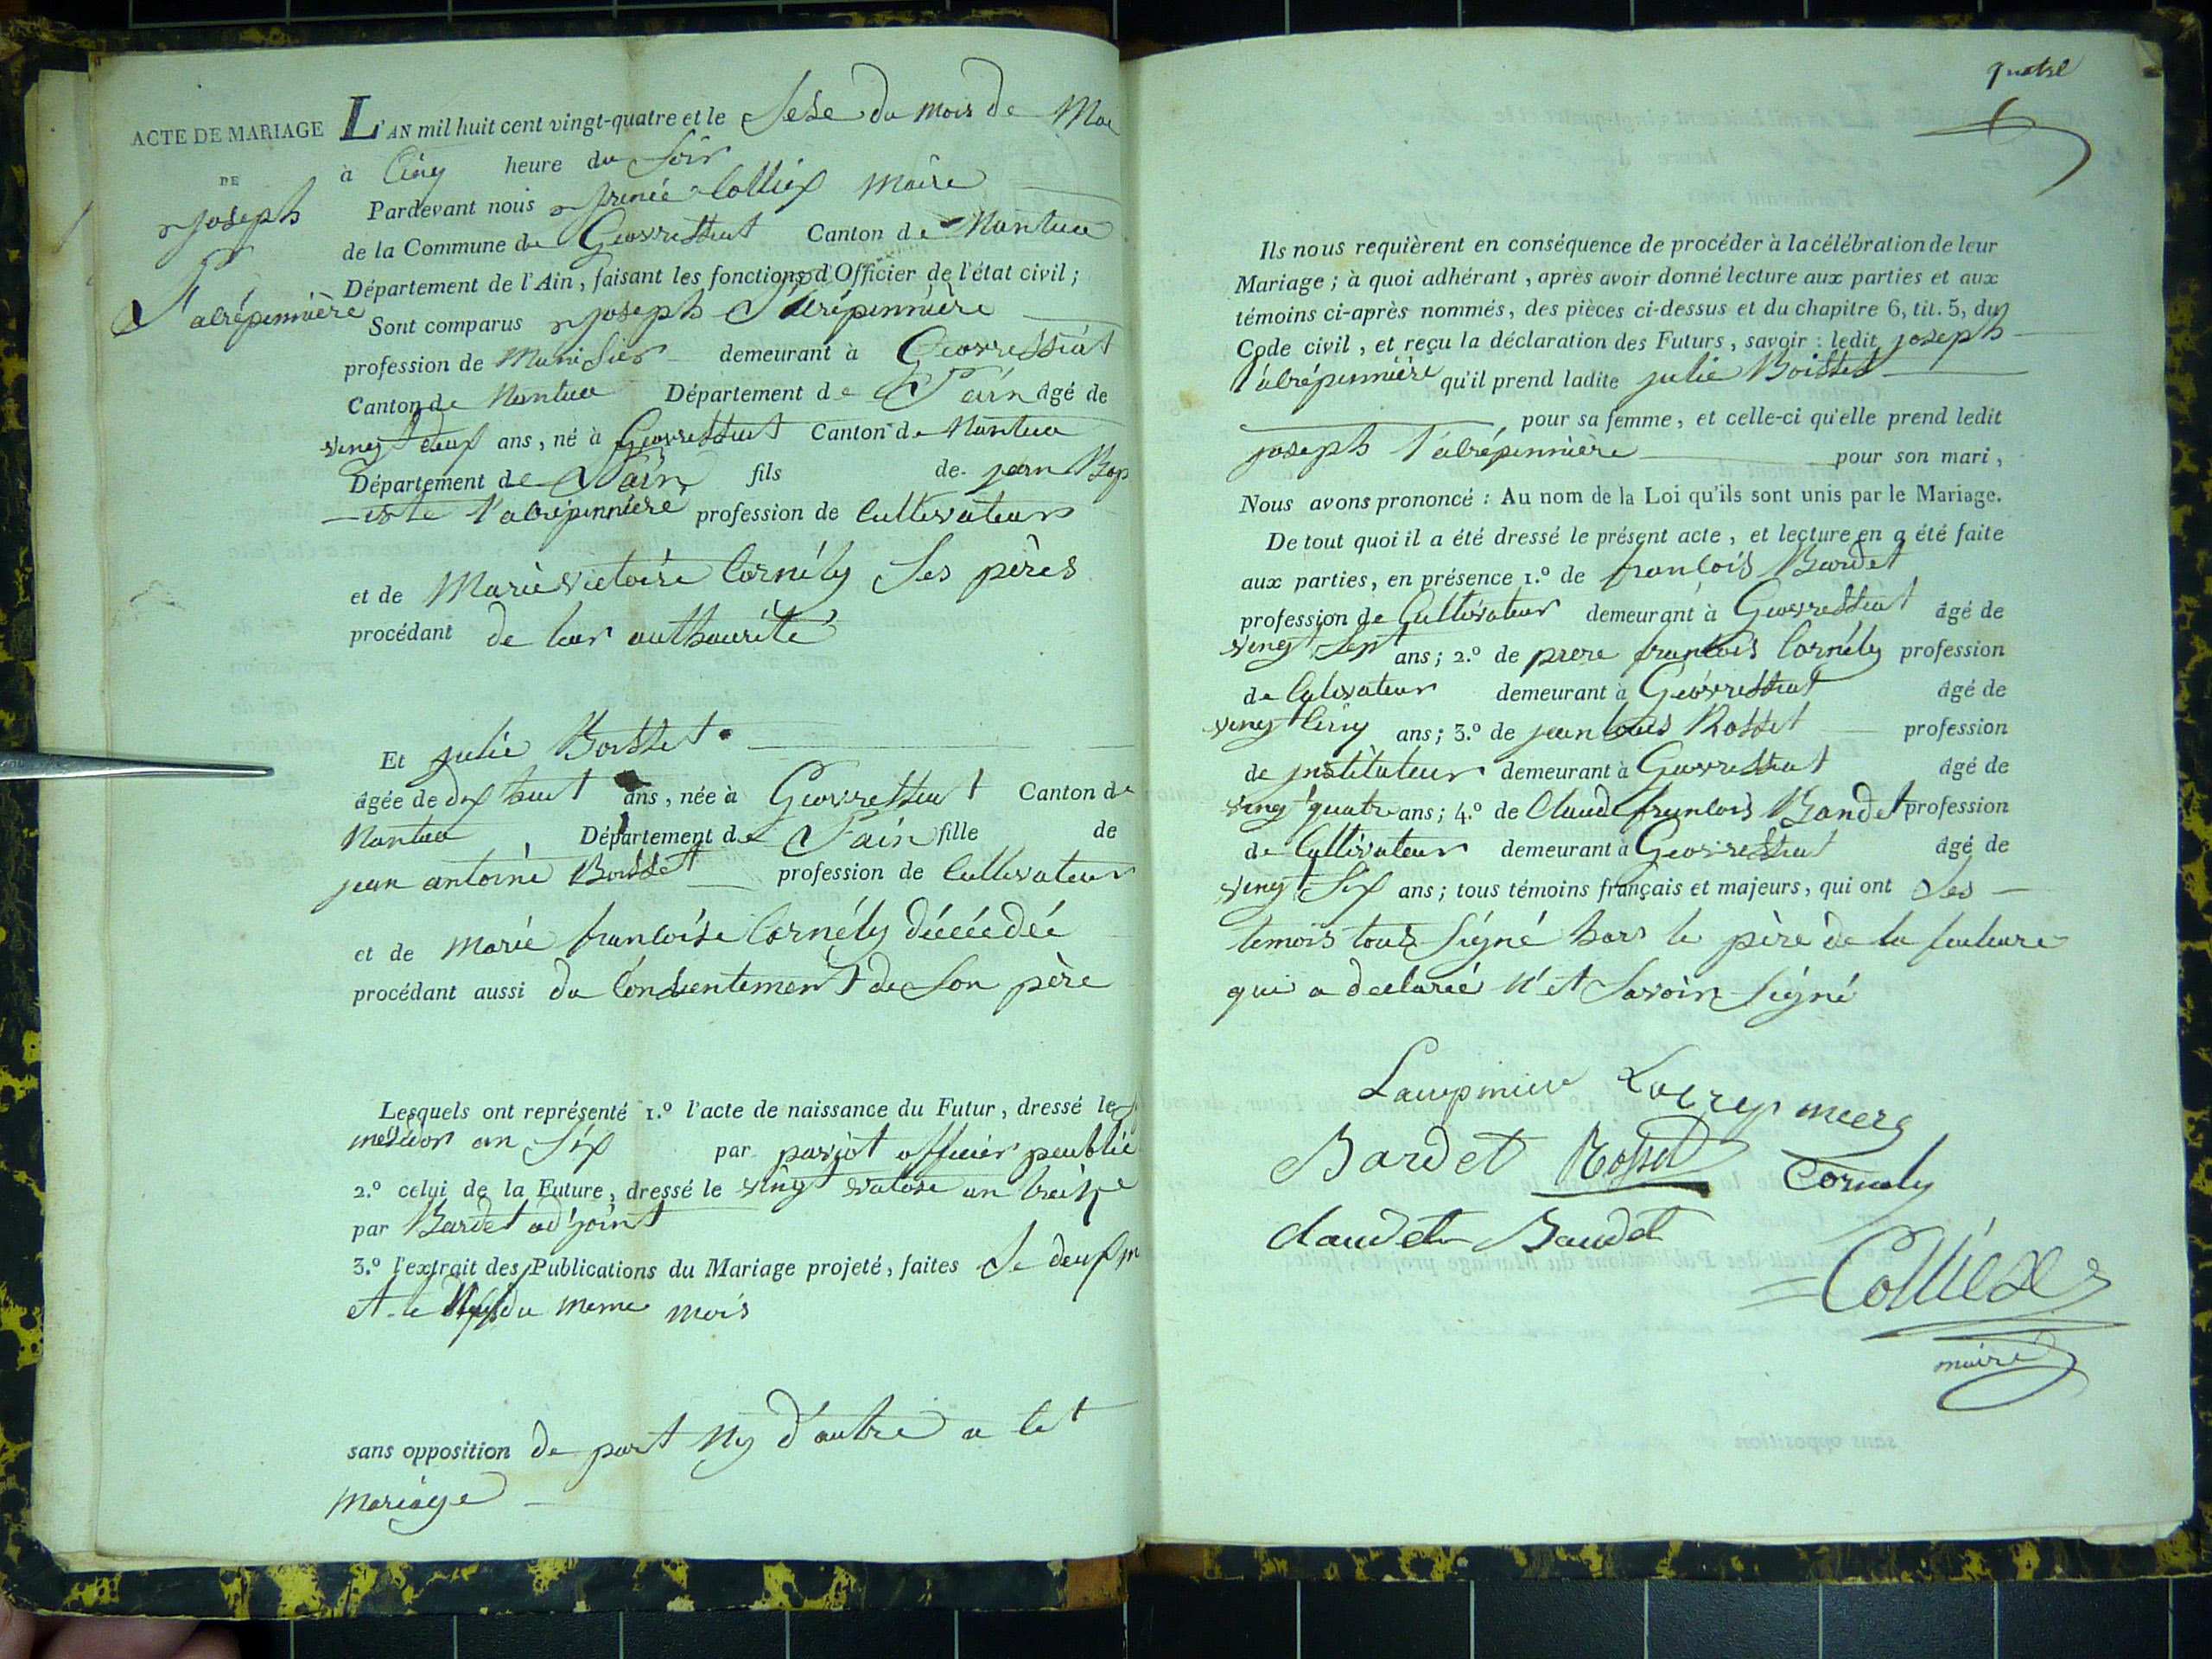 ACTE DE MARIAGE
DE
joseph
l'alrépinnière
L'AN mil huit cent vingt-quatre et le Sese du mois de Mai
à Cinq heure du Soir
Pardevant nous Colliex Maire
de la Commune de Geovressiat Canton de Nantua
Département de l'Ain, faisant les fonctions d'Officier de l'état civil;
Sont comparus joseph l'alrépinnière
profession de Munisier demeurant à Geovressiat
Canton de Nantua Département de l'ain âgé de
vingt deux ans, né à Geovressiat Canton de Nantua
Département de l'ain fils de jean Bap
iste l'alrépinnière profession de Cultivateur
et de Marie victoire Cornély Ses pères
procédant de leur authaurité
Et julie Boisset
âgée de dix huit ans, née à Geovressiat Canton de
Nantua Département de l'ain fille de
jean antoine Boisset profession de Cultivateur
et de marie francoise Cornély
procédant aussi du Consentement de Son père
Lesquels ont représenté 1.º l'acte de naissance du Futur, dressé le
mesidor an Six par officier peublic
2.º celui de la Future, dressé le vingt vatose an treize
par Bardet adjoint
3.º l'extrait des Publications du Mariage projeté, faites Le deux
et le du meme mois
sans opposition de part Ny d'autre a cet
mariage
quatre
Ils nous requièrent en conséquence de procéder à la célébration de leur
Mariage; à quoi adhérant, après avoir donné lecture aux parties et aux
témoins ci-après nommés, des pièces ci-dessus et du chapitre 6, tit. 5, du
Code civil, et reçu la déclaration des Futurs, savoir: ledit joseph
l'alrépinnière qu'il prend ladite julie Boisset
pour sa femme, et celle-ci qu'elle prend ledit
joseph l'alrépinnière pour son mari,
Nous avons prononcé: Au nom de la Loi qu'ils sont unis par le Mariage.
De tout quoi il a été dressé le présent acte, et lecture en a été faite
aux parties, en présence 1.º de francois Bardet
profession de Cultivateur demeurant à Geovressiat âgé de
vingt Sept ans; 2.º de piere francois Cornély profession
de Culivateur demeurant à Geovressiat âgé de
vingt Cinq ans; 3.º de jean louis Rosset profession
de jnstituteur demeurant à Geovressiat âgé de
vingt quatre ans; 4.º de Claude francois Baudet profession
de Cultivateur demeurant à Geovressiat âgé de
vingt Six ans; tous témoins français et majeurs, qui ont Les
temois tous Signé hors le père de la feuteure
qui a declarée n'et Savoir Signé
Bardet Rosset Cornely
claudet Baudet
Colliex
maire